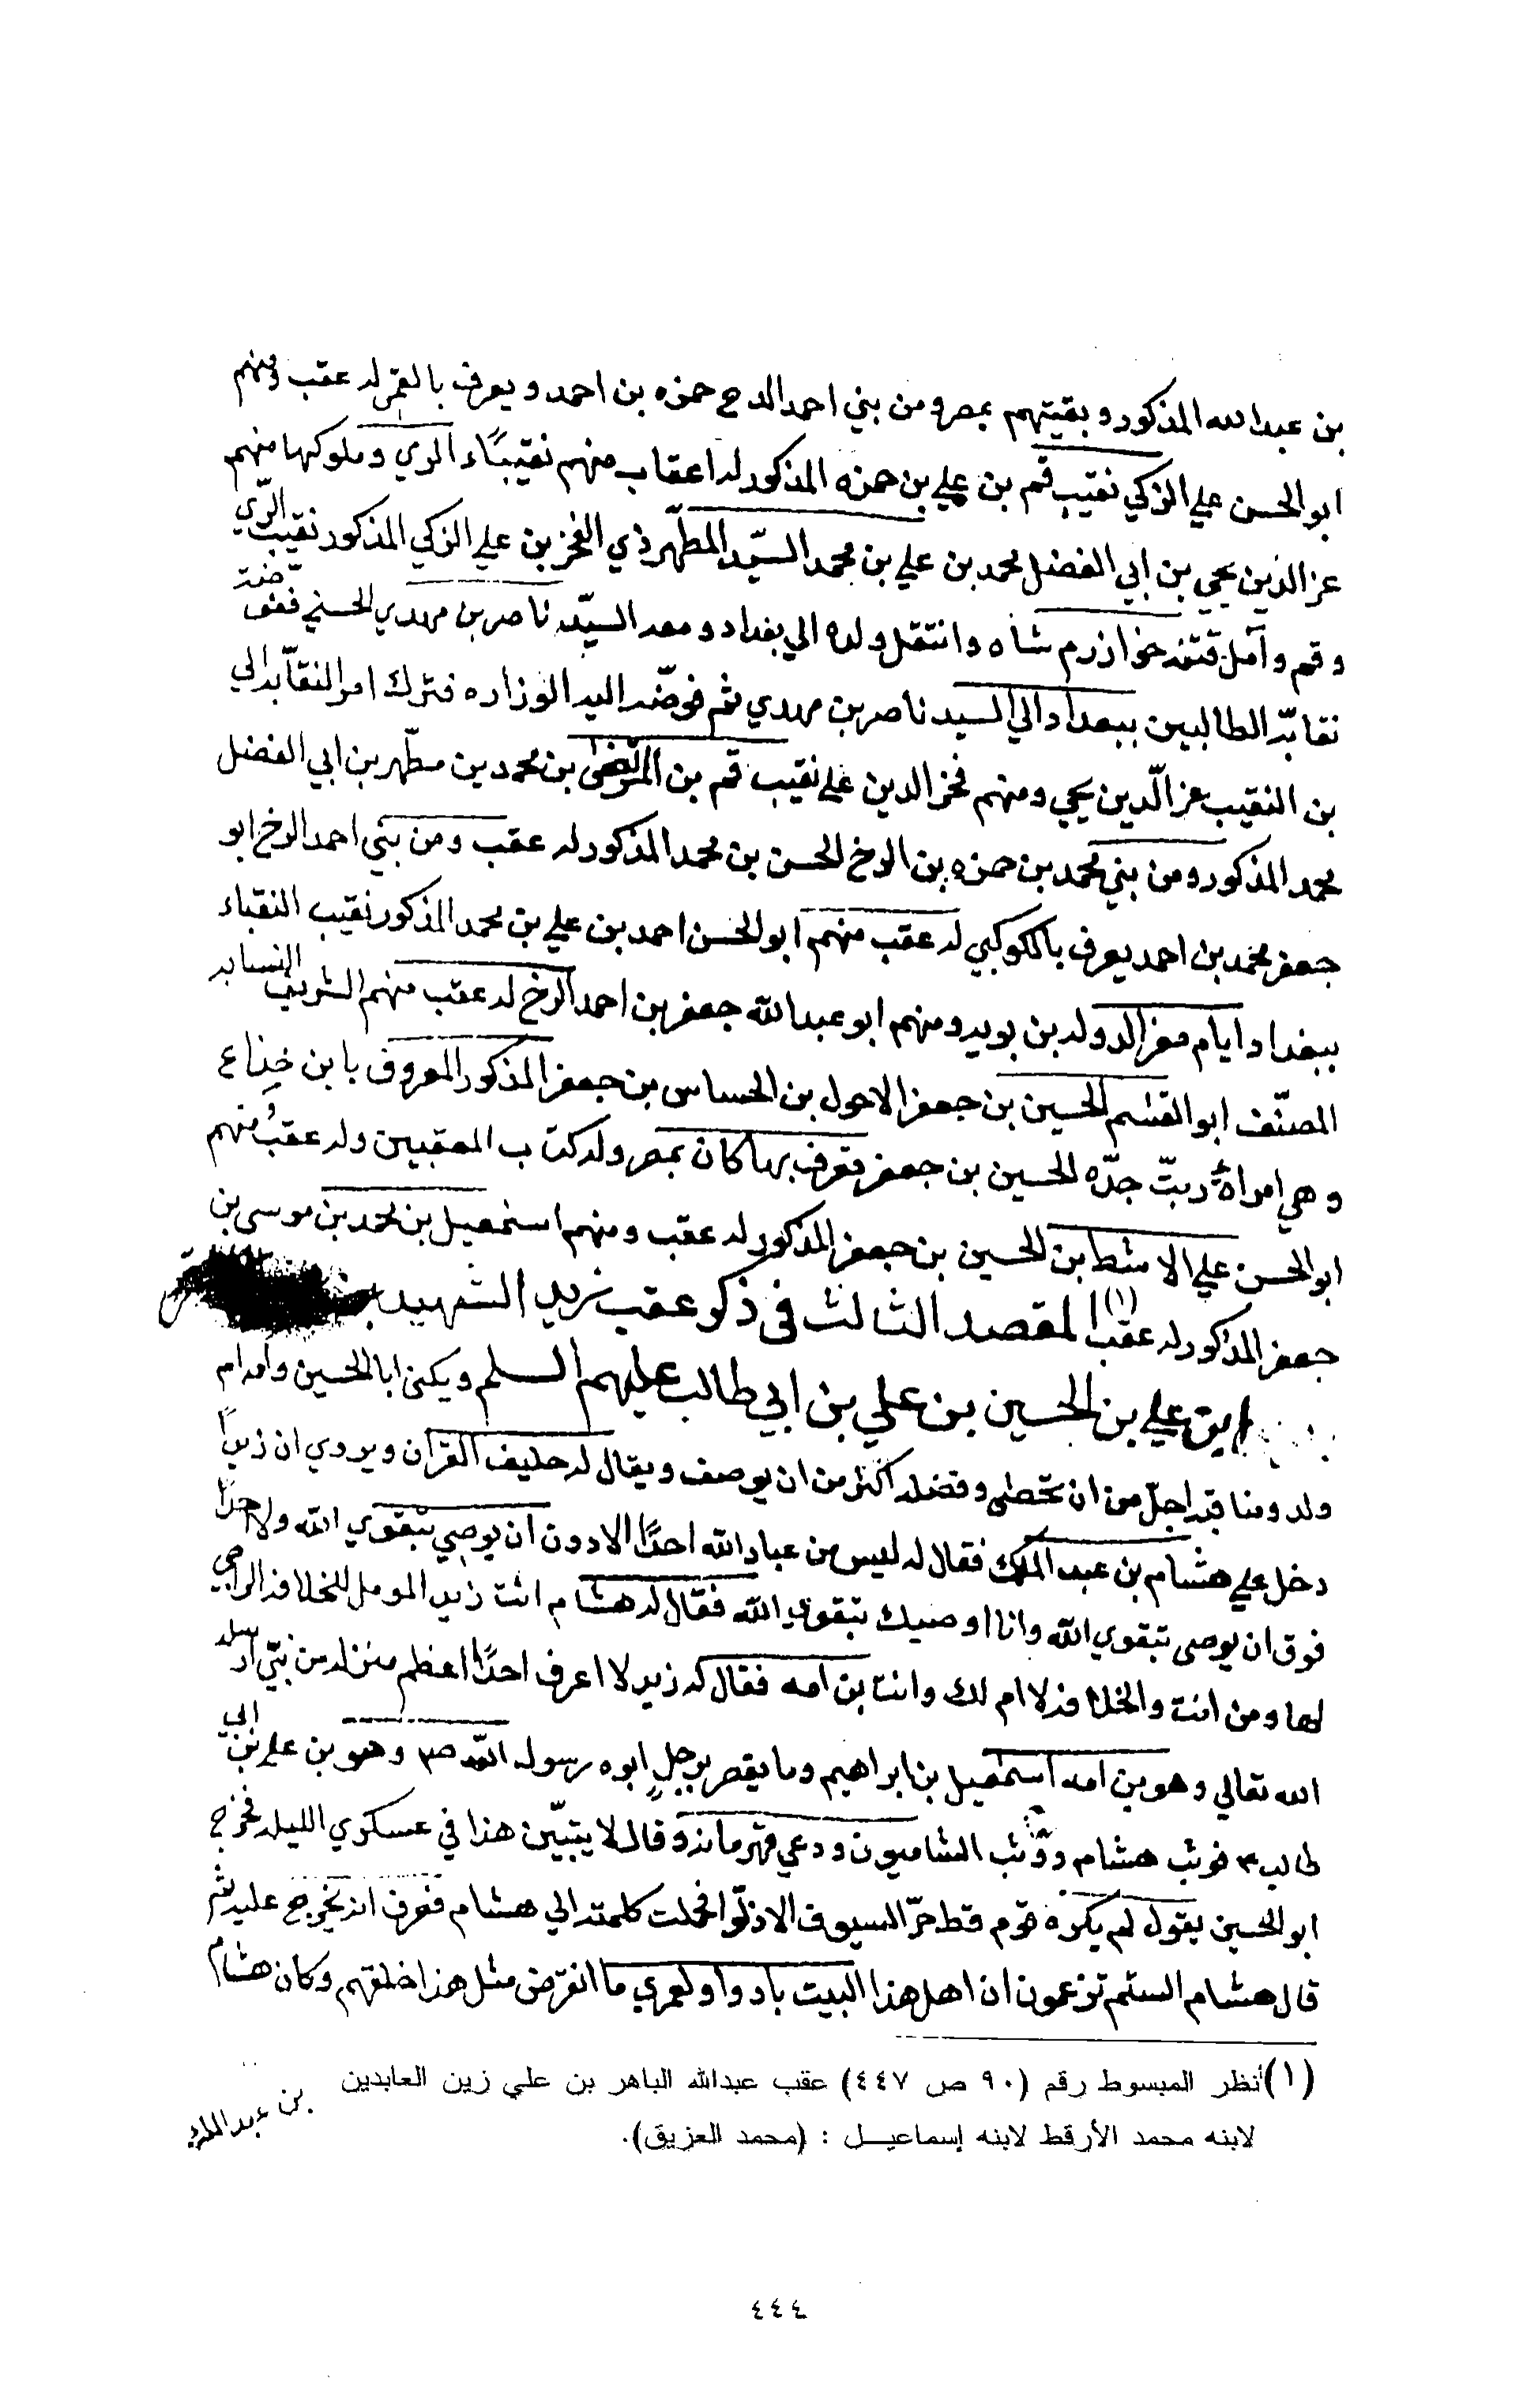 بن عبدالله المذكور وبقيتهم بمصر ومن بني احمد الدخ حمزه بن احمد ويعرف بالقمي له عقب ومنهم
ابو الحسن علي الزكي نقيب قم بن علي بن حمزه المذكور له اعقاب منهم نقيباء الري وملوكها منهم
عز الدين يحي بن ابي الفضل محمد بن علي بن محمد السيّد المطهّر ذي الفخر بن علي الزكي المذكور نقيب الرّي
وقم وآمل قتله خوارزم شاه وانتقل ولده الي بغداد ومعه السيّد ناصر بن مهدي الحسني ففوضة
نقابة الطالبين ببغداد الي السيد ناصر بن مهدي ثم فوضه اليه الوزاره فترك امر النقابه الي
بن النقيب عز الدّين يحي ومنهم فخر الدين علي نقيب قم بن المرتضى بن محمد بن مطهر بن ابي الفضل
محمد المذكور ومن بني محمد بن حمزه بن الرخ الحسن بن محمد المذكور له عقب ومن بني احمد الرخ ابو
جعفر محمد بن احمد يعرف بالكوكبي له عقب منهم ابو الحسن احمد بن علي بن محمد المذكور نقيب النقباء
ببغداد ايام معز الدوله بن بويه ومنهم ابو عبدالله جعفر بن احمد الرخ له عقب منهم الشريف النسابه
المصنّف ابو القسم الحسين بن جعفر الاحول بن الحسين بن جعفر المذكور المعروف بابن خداع
وهي امراة ربتّ جدّه الحسين بن جعفر فعرف بها كان بمصر وله كتاب المعقبين وله عقب ومنهم
ابو الحسن علي الاشط بن الحسين بن جعفر المذكور له عقب ومنهم اسمعيل بن محمد بن موسى بن
جعفر المذكور له عقب (١) المقصد الثالث في ذكر عقب زيد الشهيد
ابن علي بن الحسين بن علي بن ابي طالب عليهم السلم ويكنى ابا الحسين وامه ام
ولد ومناقبه اجلّ من ان تحصى وفضله اكثر من ان يوصف ويقال له حليف القرآن ويروي ان زيداً
دخل علي هشام بن عبد الملك فقال له ليس من عباد الله احدًا الا دون ان يوصي بتقوي الله ولا احدًا
فوق ان يوصى بتقوي الله وانا اوصيك بتقوي الله فقال له هشام انت زيد المومل للخلافه الراجي
لها ومن انت والخلافه لا ام لك وانت بن امه فقال له زيد لا اعرف احدًا اعظم منزله من نبيّ ارسله
الله تعالي وهو بن امه اسمعيل بن ابراهيم وما يقصر برجلٍ ابوه رسول الله ص وهو بن علي بن ابي
طالب فوثب هشام ووثب الشاميون ودعي قهرمانه وقال لا يبتيّن هذا في عسكري الليله فخرج
ابو الحسين يقول لم يكره قوم قط حرّ السيوف الا ذلّوا فحملت كلمته الي هشام فعرف انه يخرج عليه ثم
قال هشام الستم تزعمون ان اهل هذا البيت بادوا ولعمري ما انقرض مثل هذا خلفهم وكان هشام
بن عبد الملك
(١) أنظر المبسوط رقم (٩٠ ص ٤٤٧) عقب عبدالله الباهر بن علي زين العابدين
لابنه محمد الأرقط لابنه إسماعيل : (محمد العزيق).
٤٤٤